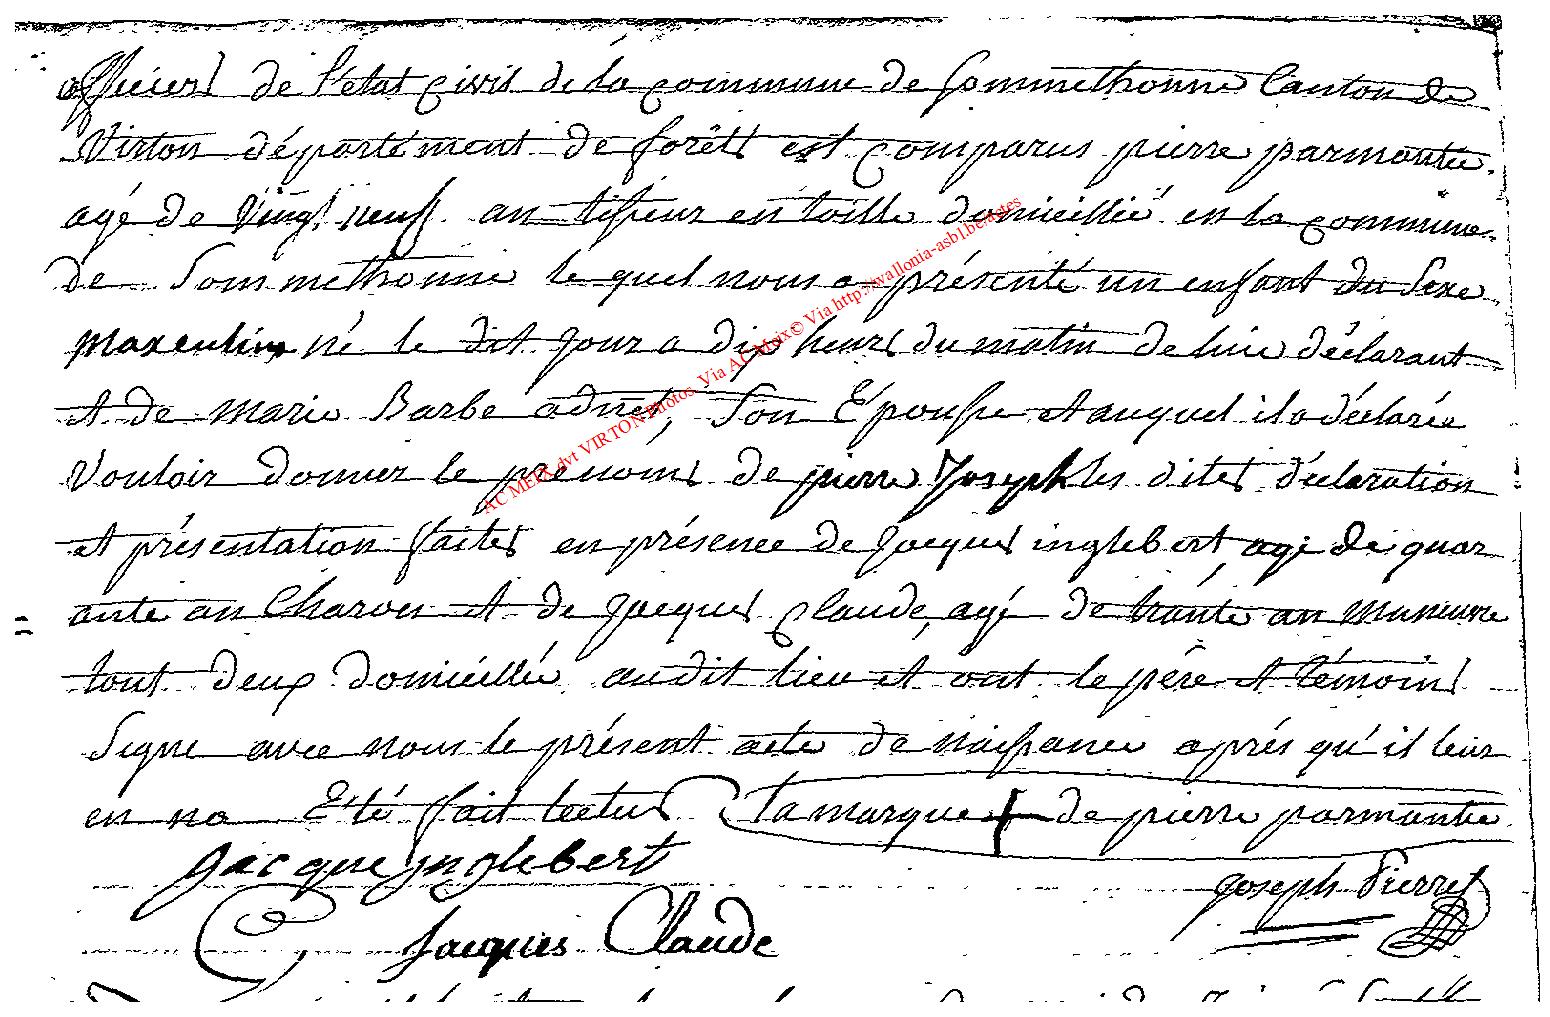 officiers de l'état civil de la commune de Sommethonne Canton de
Virton département de forêts est comparus pierre parmentie
agé de Vingt neuf an tisseur en toille domicillié en la commune
de Sommethonne le quel nous a présenté un enfant du Sexe
maxculin né le dit jour a dix heurs du matin de luie déclarant
et de marie Barbe adnet, Son Épousse et auquel il a déclarée
Vouloir donner le prenoms de pierre Joseph les dites déclaration
et présentation faites en présence de jacques inglebert, agé de quar
ante an Charon et de jacques claude, agé de trante an Maneuvre
tout deux domicillié audit lieu et ont le père et témoins
Signe avec nous le présent acte de naissance après qu'il leur
en na Été fait lecture la marque + de pierre parmentie
jacque inglebert
Joseph Pierret
Jacques Claude
AC MEIX dvt VIRTON Photos. Via AC Meix© Via http://wallonia-asbl.be/dates